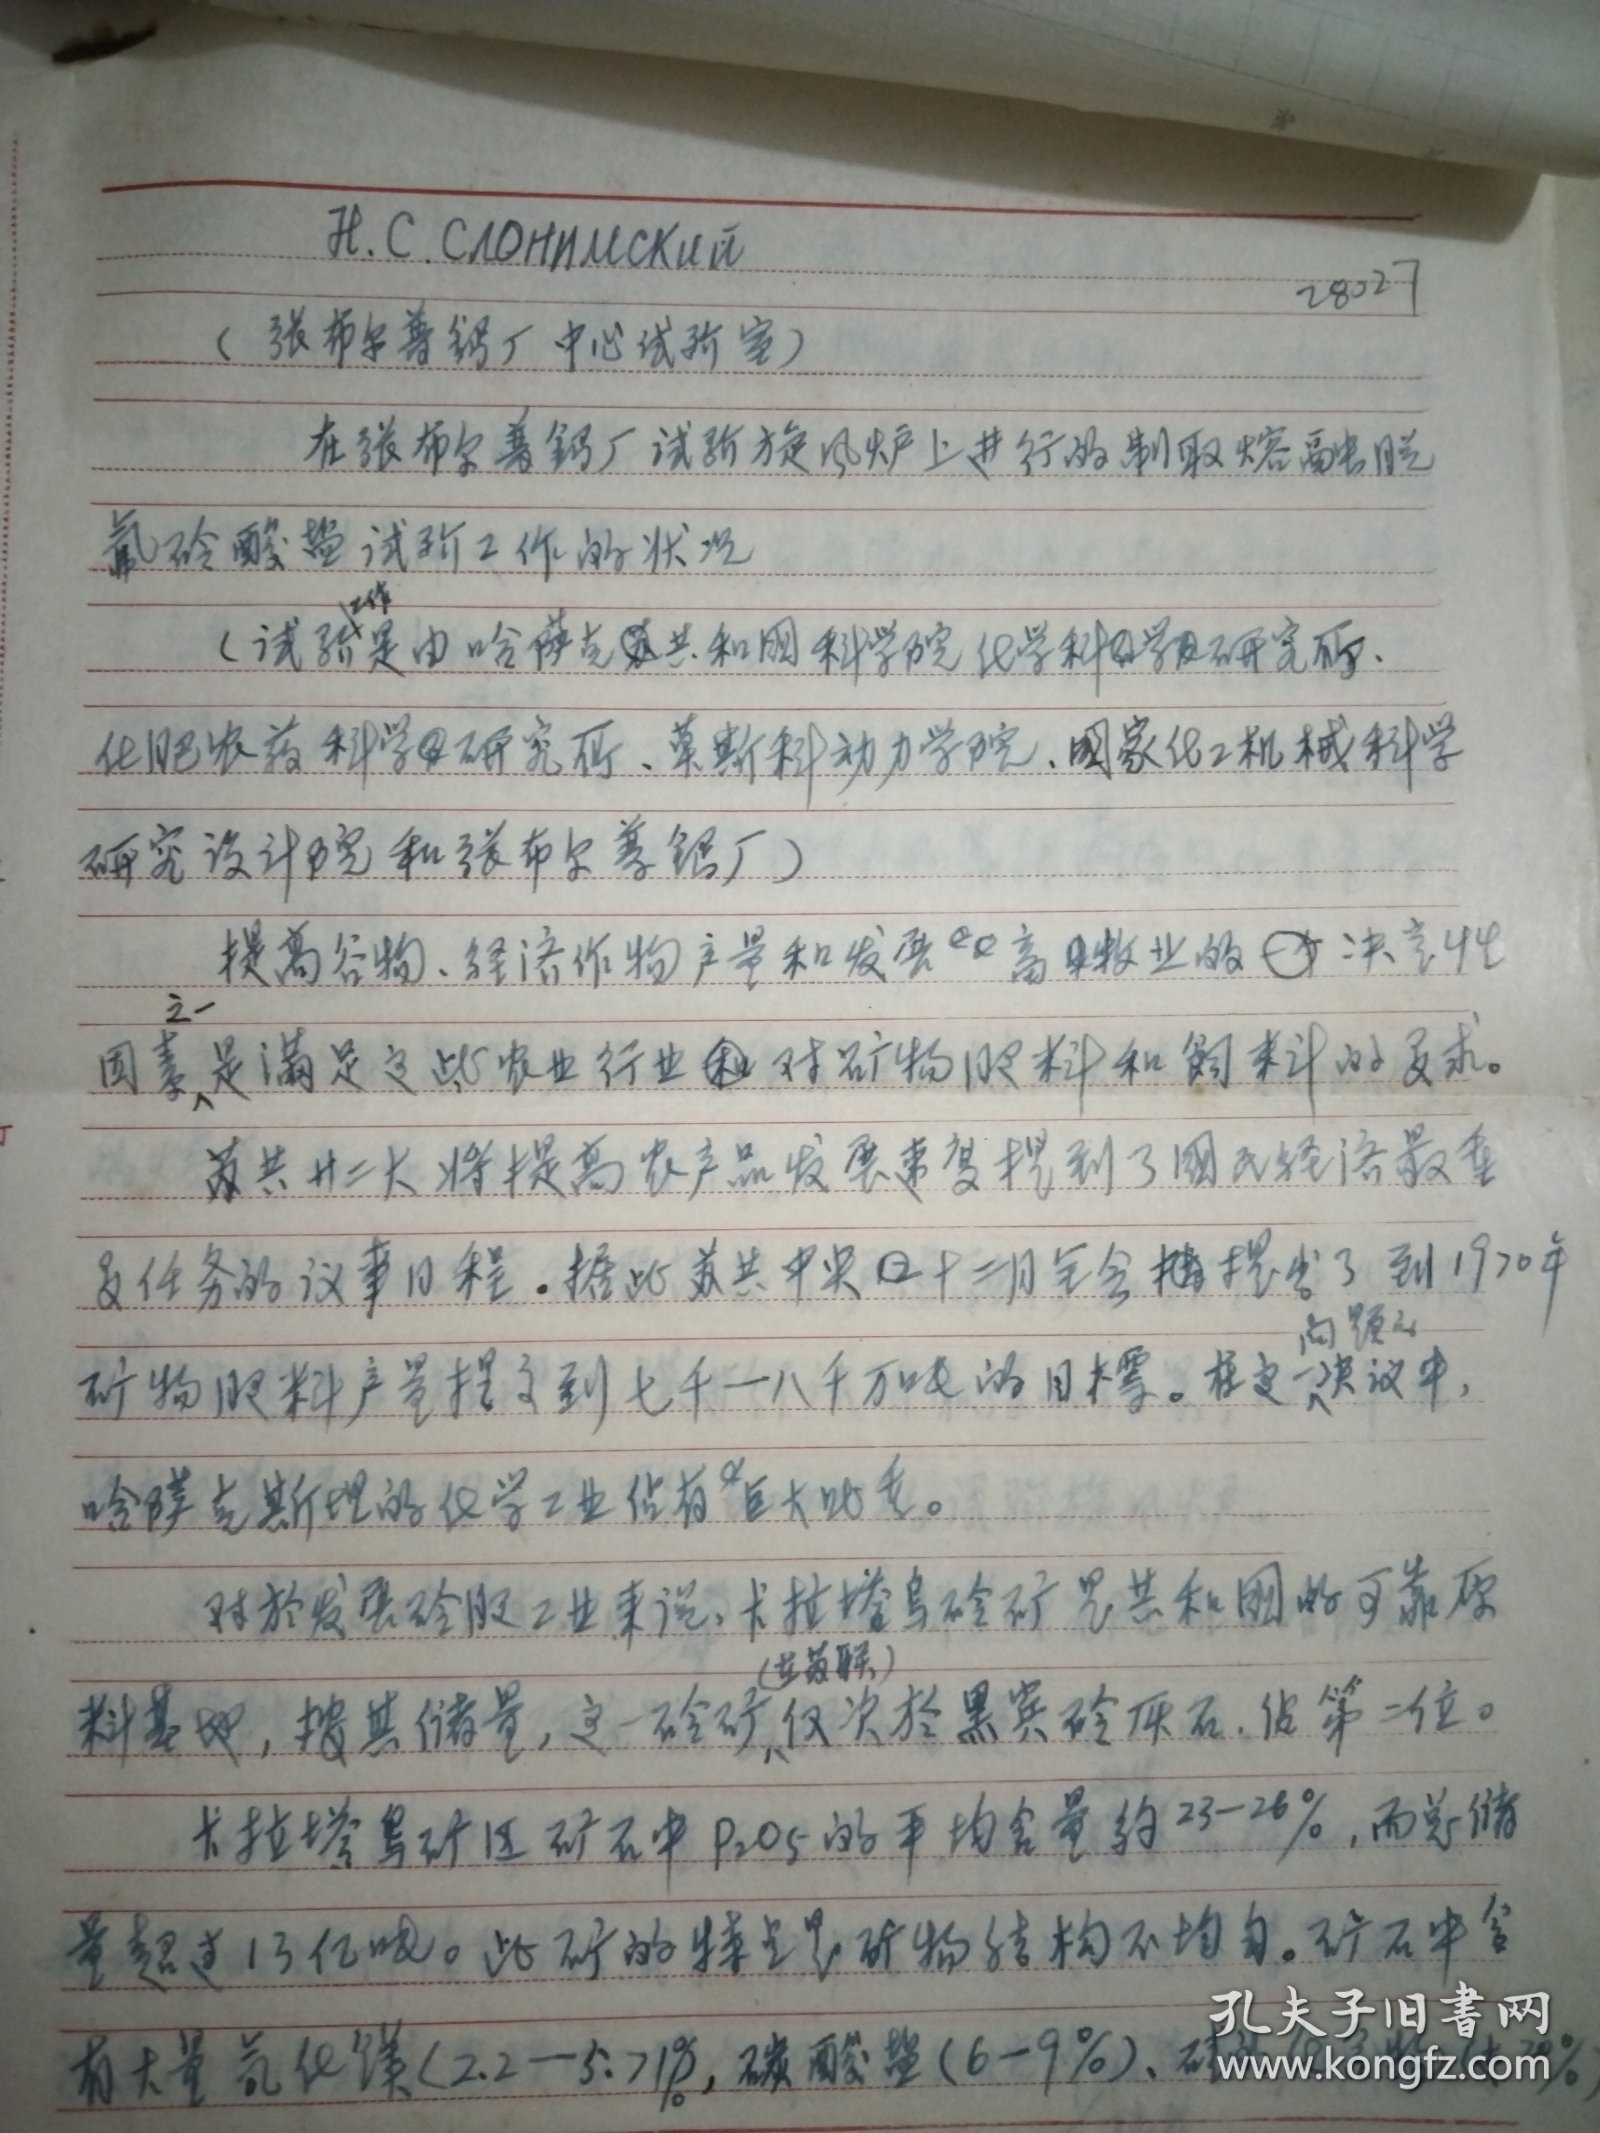 Н.С. СЛОНИМСКИЙ
28027
(张布尔普鈣厂中心试验室)
在张布尔普鈣厂试验旋风炉上进行的制取熔融脱
氟磷酸盐试验工作的状况
工作
(试验是由哈萨克共和国科学院化学科学研究所、
化肥农药科学研究所、莫斯科动力学院、国家化工机械科学
研究设计院和张布尔普鈣厂)
提高谷物、经济作物产量和发展畜牧业的决定性
之一
因素是满足这些农业行业对矿物肥料和饲料的要求。
苏共廿二大将提高农产品发展速度提到了国民经济最重
要任务的议事日程。据此苏共中央十二月全会提出了到1970年
问题的
矿物肥料产量提高到七千—八千万吨的目标。在这一决议中,
哈萨克斯坦的化学工业占有巨大比重。
对於发展磷肥工业来说,卡拉塔乌磷矿是共和国的可靠原
(在苏联)
料基地,按其储量,这一磷矿仅次於黑宾磷灰石,佔第二位。
卡拉塔乌矿区矿石中P2O5的平均含量约23—26%,而总储
量超过13亿吨。此矿的特点是矿物结构不均匀。矿石中含
有大量氧化镁(2.2—5.71%,碳酸盐(6—9%)、
孔夫子旧书网
www.kongfz.com